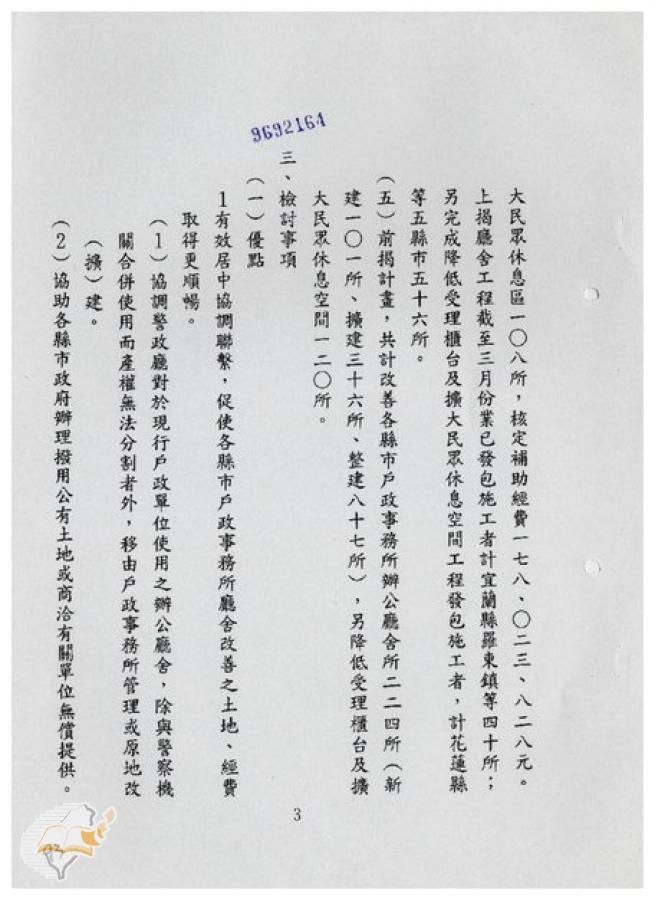 9692164
大民眾休息區一〇八所，核定補助經費一七八、〇二三、八二八元。
上揭廳舍工程截至三月份業已發包施工者計宜蘭縣羅東鎮等四十所；
另完成降低受理櫃台及擴大民眾休息空間工程發包施工者，計花蓮縣
等五縣市五十六所。
（五）前揭計畫，共計改善各縣市戶政事務所辦公廳舍所二二四所（新
建一〇一所、擴建三十六所、整建八十七所），另降低受理櫃台及擴
大民眾休息空間一二〇所。
三、檢討事項
（一）優點
1有效居中協調聯繫，促使各縣市戶政事務所廳舍改善之土地、經費
取得更順暢。
（1）協調警政廳對於現行戶政單位使用之辦公廳舍，除與警察機
關合併使用而產權無法分割者外，移由戶政事務所管理或原地改
（擴）建。
（2）協助各縣市政府辦理撥用公有土地或商洽有關單位無償提供。
3